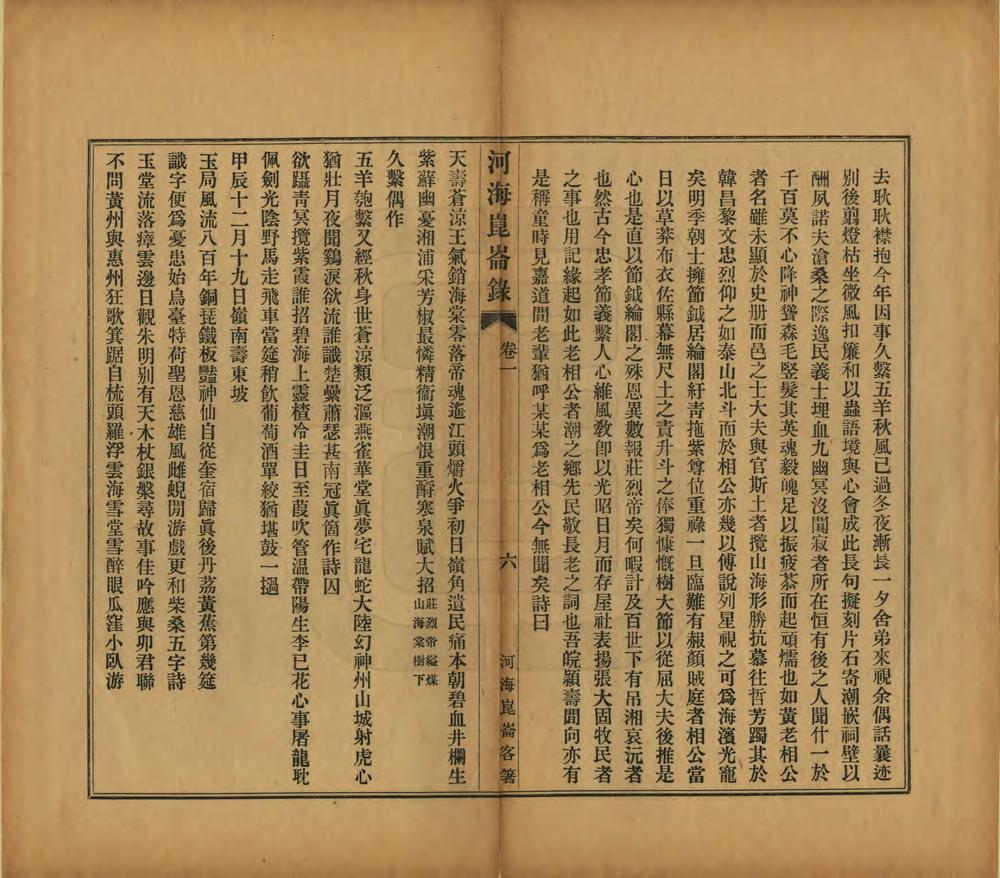 去耿耿襟抱今年因事久繫五羊秋風已過冬夜漸長一夕舍弟來視余偶話曩迹
別後翦燈枯坐微風扣簾和以蟲語境與心會成此長句擬刻片石寄潮嵌祠壁以
酬夙諾夫滄桑之際逸民義士埋血九幽冥沒闃寂者所在恒有後之人聞什一於
千百莫不心降神聳森毛竪髮其英魂毅魄足以振疲苶而起頑懦也如黃老相公
者名雖未顯於史册而邑之士大夫與官斯土者攬山海形勝抗慕往哲芳躅其於
韓昌黎文忠烈仰之如泰山北斗而於相公亦幾以傅說列星視之可爲海濱光寵
矣明季朝士擁節鉞居綸閣紆青拖紫尊位重祿一旦臨難有赧顏賊庭者相公當
日以草莽布衣佐縣幕無尺土之責升斗之俸獨慷慨樹大節以從屈大夫後推是
心也是直以節鉞綸閣之殊恩異數報莊烈帝矣何暇計及百世下有吊湘哀沅者
也然古今忠孝節義繫人心維風敎卽以光昭日月而存屋社表揚張大固牧民者
之事也用記緣起如此老相公者潮之鄕先民敬長老之詞也吾皖潁壽間向亦有
是稱童時見嘉道間老輩猶呼某某爲老相公今無聞矣詩曰
河海崑崙錄 卷一 六 河海崑崙客箸
天壽蒼涼王氣銷海棠零落帝魂遙江頭爝火爭初日嶺角遺民痛本朝碧血井欄生
紫蘇幽憂湘浦采芳椒最憐精衞塡潮恨重酹寒泉賦大招莊烈帝縊煤山海棠樹下
久繫偶作
五羊匏繫又經秋身世蒼涼類泛漚燕雀華堂眞夢宅龍蛇大陸幻神州山城射虎心
猶壯月夜聞鷄淚欲流誰識楚纍蕭瑟甚南冠眞箇作詩囚
欲躡靑冥攬紫霞誰招碧海上靈楂冷圭日至葭吹管溫帶陽生李已花心事屠龍耽
佩劍光陰野馬走飛車當筵稍飮葡萄酒單絞猶堪鼓一撾
甲辰十二月十九日嶺南壽東坡
玉局風流八百年銅琵鐵板豔神仙自從奎宿歸眞後丹荔黃蕉第幾筵
識字便爲憂患始烏臺特荷聖恩慈雄風雌蜺閒游戲更和柴桑五字詩
玉堂流落瘴雲邊日觀朱明別有天木杖銀槃尋故事佳吟應與卯君聯
不問黃州與惠州狂歌箕踞自梳頭羅浮雲海雪堂雪醉眼瓜窪小臥游